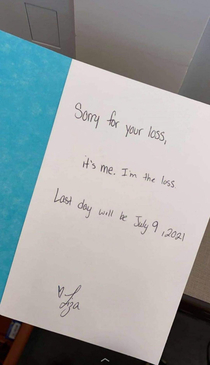 Sorry for your loss,
it's me. I'm the loss.
Last day will be July 9, 2021
♡ Iza